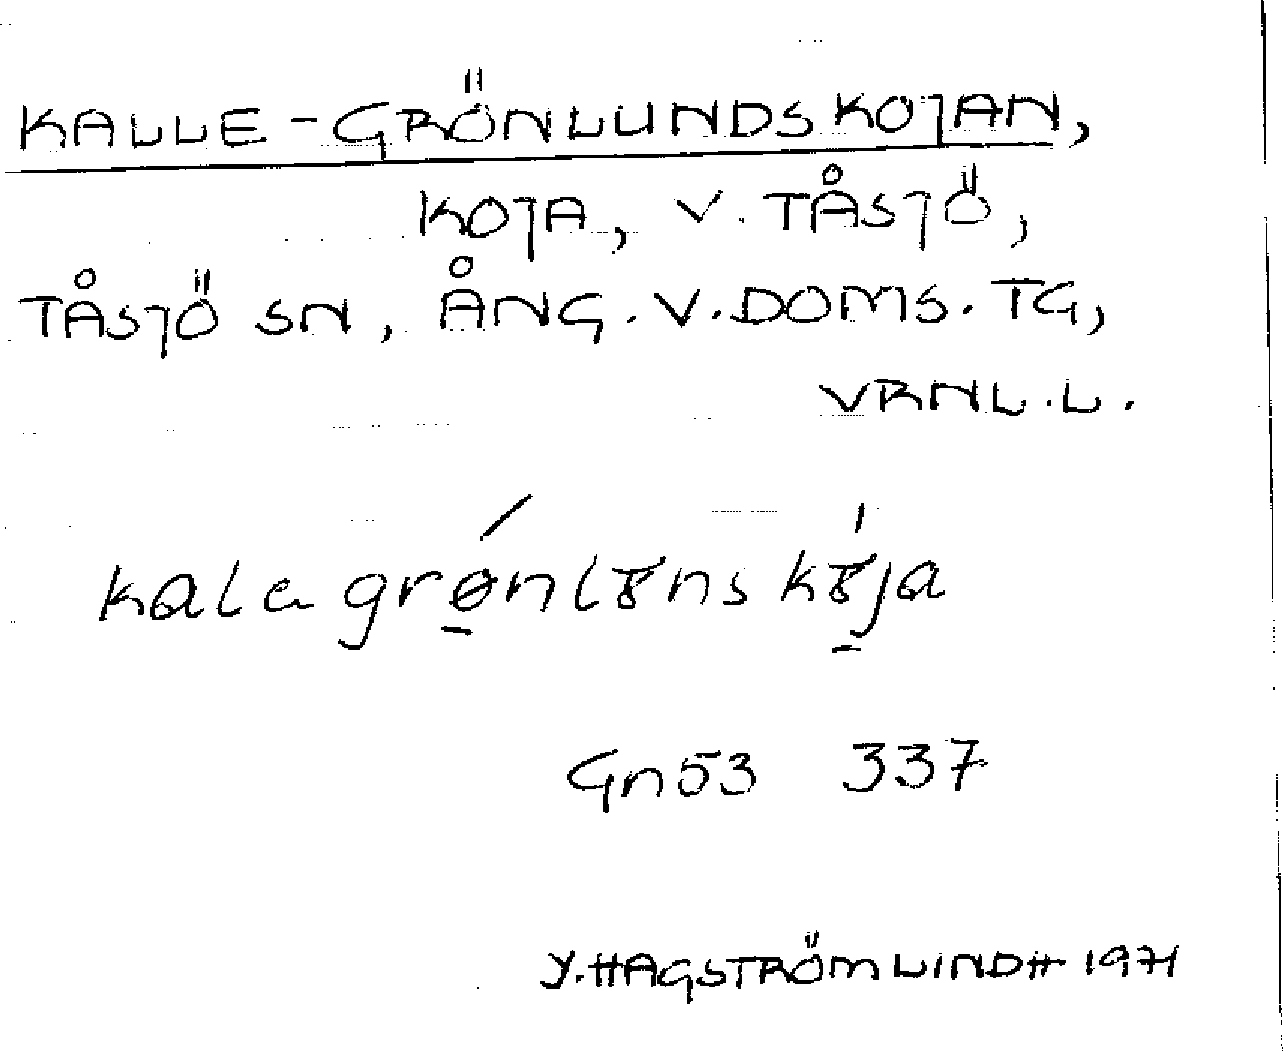 KALLE-GRÖNLUNDSKOJAN,
KOJA, V. TÅSJÖ,
TÅSJÖ SN, ÅNG. V. DOMS. TG,
VRNL.L.
Gn53 337
Y. HAGSTRÖM LINDH 1971